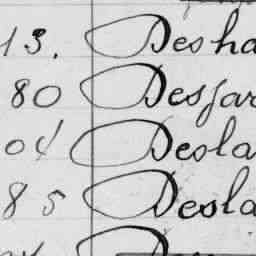 13. Desha
80 Desjar
04 Desla
85 Desla